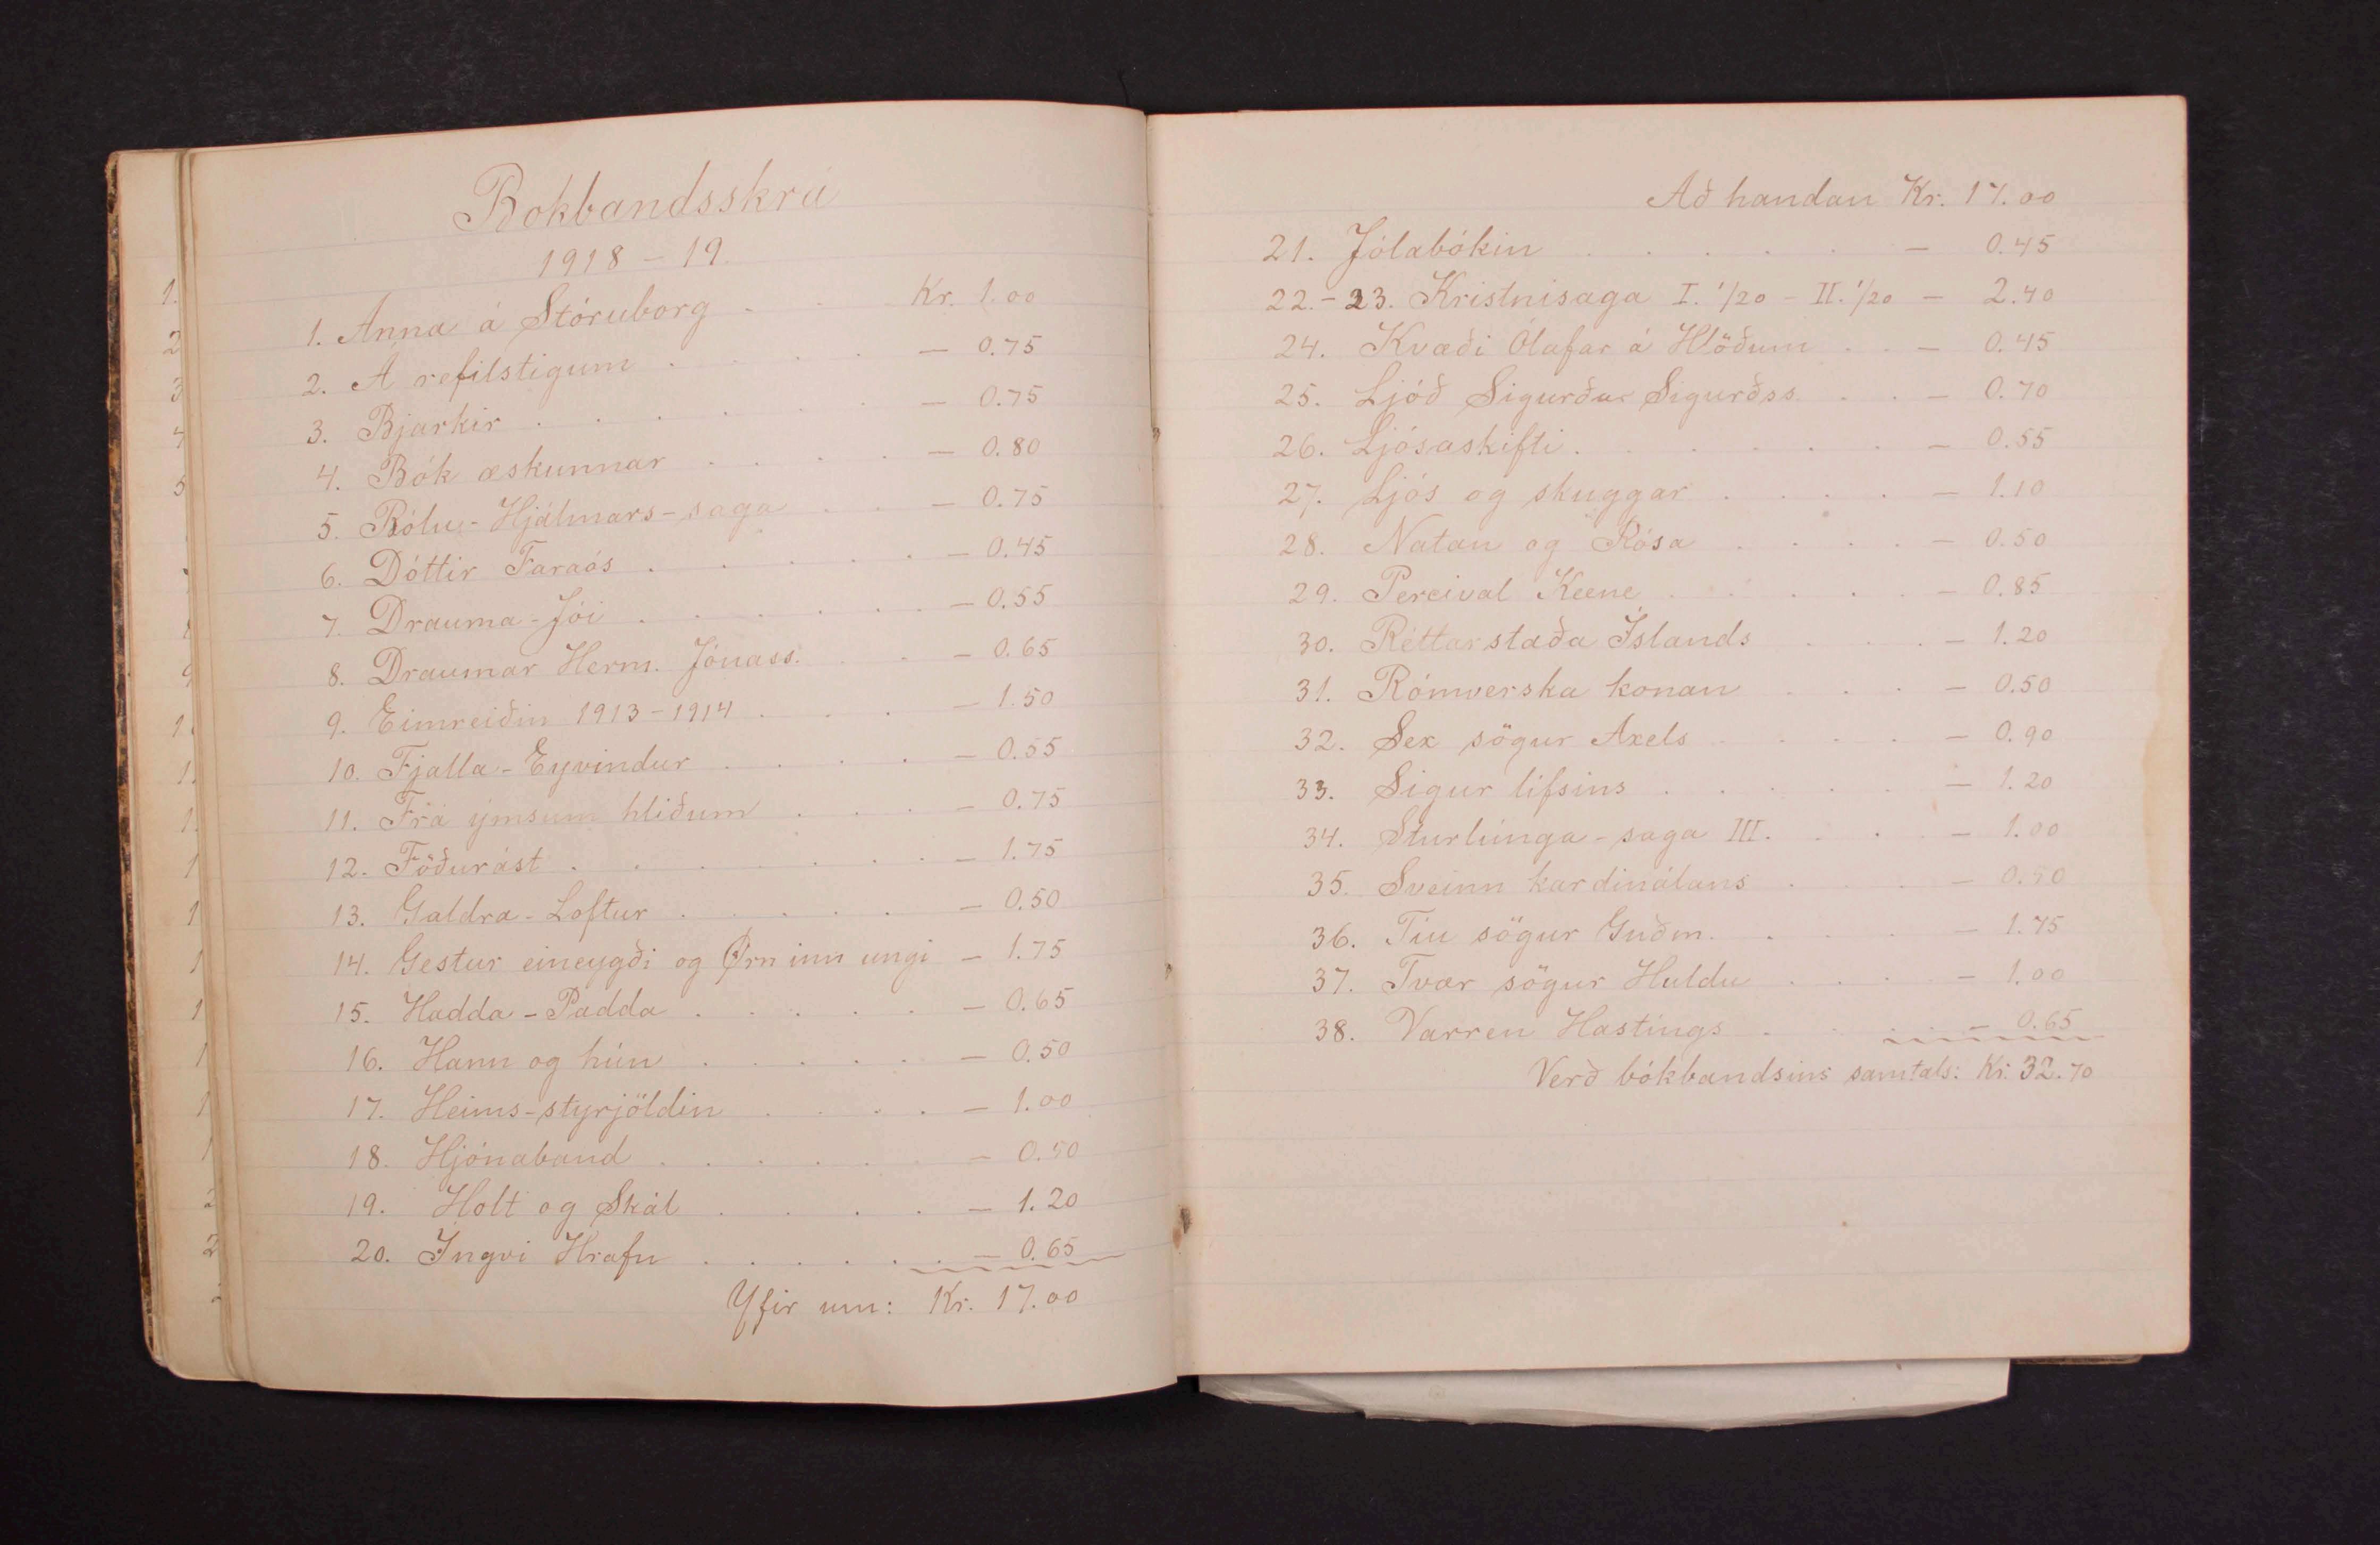 Bókbandsskrá
1918 - 19.
1. Anna á Stóruborg . . Kr. 1.00
2. Á refilstigum . . . . — 0.75
3. Bjarkir . . . . . . — 0.75
4. Bók æskunnar . . . . — 0.80
5. Bólu-Hjálmars-saga . . — 0.75
6. Dóttir Faraós . . . . . — 0.45
7. Drauma-Jói . . . . . . — 0.55
8. Draumar Herm. Jónass. . . — 0.65
9. Eimreiðin 1913-1914 . . . — 1.50
10. Fjalla-Eyvindur . . . . — 0.55
11. Frá ýmsum hliðum . . . — 0.75
12. Föðurást . . . . . . . — 1.75
13. Galdra-Loftur . . . . . — 0.50
14. Gestur eineygði og Örn inn ungi — 1.75
15. Hadda-Padda . . . . . — 0.65
16. Hann og hún . . . . . — 0.50
17. Heims-styrjöldin . . . . — 1.00
18. Hjónaband . . . . . . — 0.50
19. Holt og Skál . . . . — 1.20
20. Ingvi Hrafn . . . . . — 0.65
Yfir um: Kr. 17.00
Að handan Kr. 17.00
21. Jólabókin . . . . . — 0.45
22.-23. Kristnisaga I. 1/20 - II. 1/20 — 2.40
24. Kvæði Ólafar á Hlöðum . . — 0.45
25. Ljóð Sigurðar Sigurðss. . . — 0.70
26. Ljósaskifti . . . . . . — 0.55
27. Ljós og skuggar . . . . — 1.10
28. Natan og Rósa . . . . — 0.50
29. Percival Keene . . . . . — 0.85
30. Réttarstaða Íslands . . . — 1.20
31. Rómverska konan . . . — 0.50
32. Sex sögur Axels . . . . — 0.90
33. Sigur lífsins . . . . . — 1.20
34. Sturlunga-saga III. . . — 1.00
35. Sveinn kardinálans . . . — 0.50
36. Tíu sögur Guðm. . . . — 1.75
37. Tvær sögur Huldu . . . — 1.00
38. Varren Hastings . . . . — 0.65
Verð bókbandsins samtals: Kr. 32.70